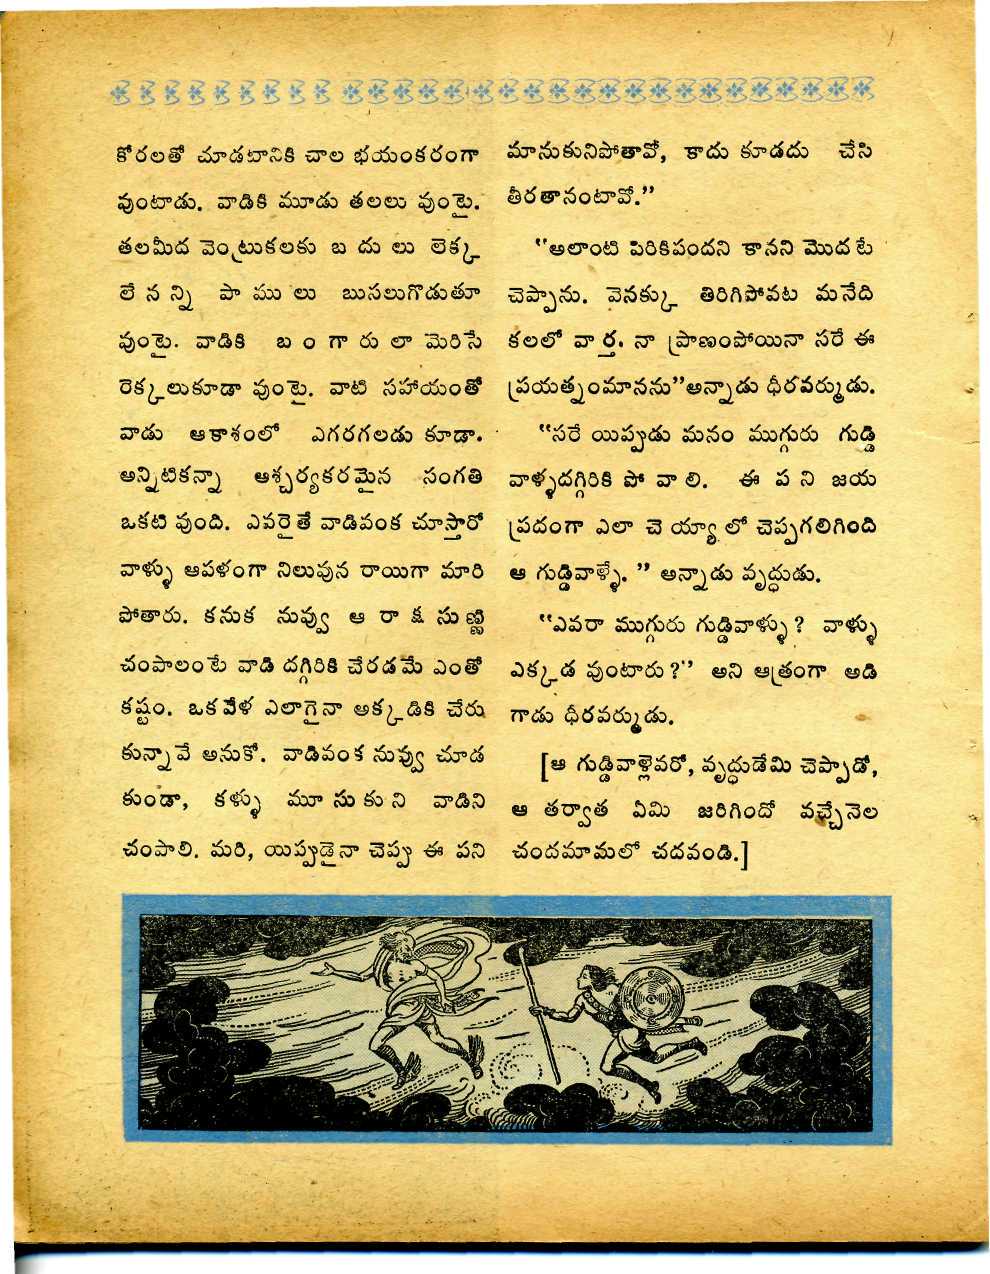 కోరలతో చూడటానికి చాల భయంకరంగా
వుంటాడు. వాడికి మూడు తలలు వుంటై.
తలమీద వెంట్రుకలకు బదులు లెక్క
లేనన్ని పాములు బుసలుగొడుతూ
వుంటై. వాడికి బంగారులా మెరిసే
రెక్కలుకూడా వుంటై. వాటి సహాయంతో
వాడు ఆకాశంలో ఎగరగలడు కూడా.
అన్నిటికన్నా ఆశ్చర్యకరమైన సంగతి
ఒకటి వుంది. ఎవరైతే వాడివంక చూస్తారో
వాళ్ళు ఆపళంగా నిలువున రాయిగా మారి
పోతారు. కనుక నువ్వు ఆ రాక్షసుణ్ణి
చంపాలంటే వాడి దగ్గిరికి చేరడమే ఎంతో
కష్టం. ఒకవేళ ఎలాగైనా అక్కడికి చేరు
కున్నావే అనుకో. వాడివంక నువ్వు చూడ
కుండా, కళ్ళు మూసుకుని వాడిని
చంపాలి. మరి, యిప్పుడైనా చెప్పు ఈ పని
మానుకునిపోతావో, కాదు కూడదు చేసి
తీరతానంటావో.”
“అలాంటి పిరికిపందని కానని మొదటే
చెప్పాను. వెనక్కు తిరిగిపోవట మనేది
కలలో వార్త. నా ప్రాణంపోయినా సరే ఈ
ప్రయత్నంమానను”అన్నాడు ధీరవర్ముడు.
“సరే యిప్పుడు మనం ముగ్గురు గుడ్డి
వాళ్ళదగ్గిరికి పోవాలి. ఈ పని జయ
ప్రదంగా ఎలా చెయ్యాలో చెప్పగలిగింది
ఆ గుడ్డివాళ్ళే.” అన్నాడు వృద్ధుడు.
“ఎవరా ముగ్గురు గుడ్డివాళ్ళు? వాళ్ళు
ఎక్కడ వుంటారు?” అని ఆత్రంగా అడి
గాడు ధీరవర్ముడు.
[ఆ గుడ్డివాళ్లెవరో, వృద్ధుడేమి చెప్పాడో,
ఆ తర్వాత ఏమి జరిగిందో వచ్చేనెల
చందమామలో చదవండి.]